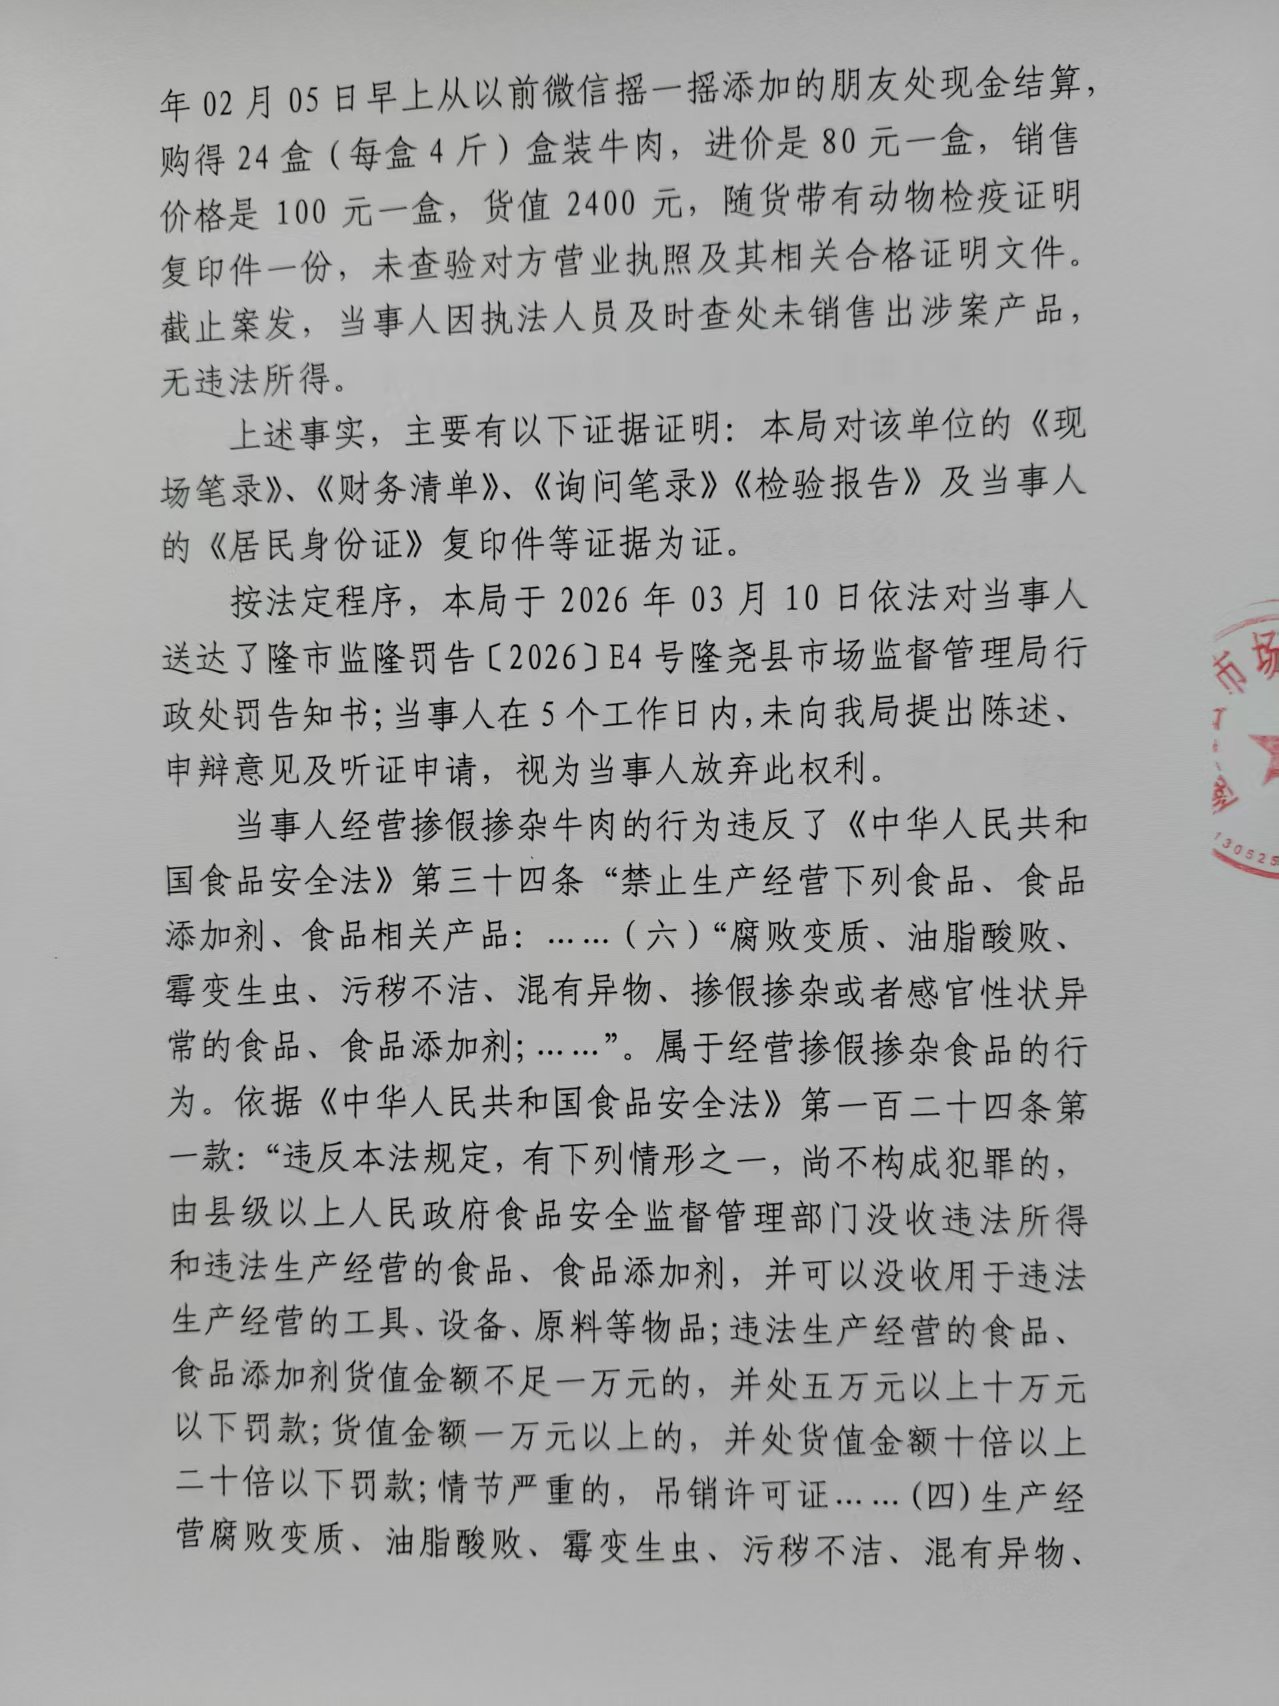 年 02 月 05 日早上从以前微信摇一摇添加的朋友处现金结算，
购得 24 盒（每盒 4 斤）盒装牛肉，进价是 80 元一盒，销售
价格是 100 元一盒，货值 2400 元，随货带有动物检疫证明
复印件一份，未查验对方营业执照及其相关合格证明文件。
截止案发，当事人因执法人员及时查处未销售出涉案产品，
无违法所得。
上述事实，主要有以下证据证明：本局对该单位的《现
场笔录》、《财务清单》、《询问笔录》《检验报告》及当事人
的《居民身份证》复印件等证据为证。
按法定程序，本局于 2026 年 03 月 10 日依法对当事人
送达了隆市监隆罚告〔2026〕E4 号隆尧县市场监督管理局行
政处罚告知书；当事人在 5 个工作日内，未向我局提出陈述、
申辩意见及听证申请，视为当事人放弃此权利。
当事人经营掺假掺杂牛肉的行为违反了《中华人民共和
国食品安全法》第三十四条“禁止生产经营下列食品、食品
添加剂、食品相关产品：……（六）“腐败变质、油脂酸败、
霉变生虫、污秽不洁、混有异物、掺假掺杂或者感官性状异
常的食品、食品添加剂；……”。属于经营掺假掺杂食品的行
为。依据《中华人民共和国食品安全法》第一百二十四条第
一款：“违反本法规定，有下列情形之一，尚不构成犯罪的，
由县级以上人民政府食品安全监督管理部门没收违法所得
和违法生产经营的食品、食品添加剂，并可以没收用于违法
生产经营的工具、设备、原料等物品；违法生产经营的食品、
食品添加剂货值金额不足一万元的，并处五万元以上十万元
以下罚款；货值金额一万元以上的，并处货值金额十倍以上
二十倍以下罚款；情节严重的，吊销许可证……（四）生产经
营腐败变质、油脂酸败、霉变生虫、污秽不洁、混有异物、
市场
130525